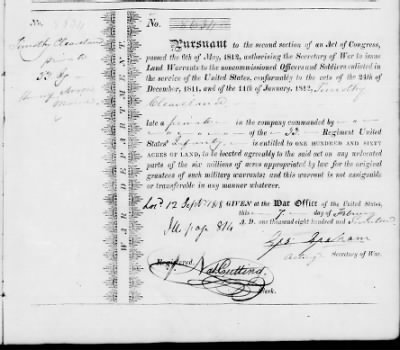 No. 8634
Timothy Cleaveland
private
WAR DEPARTMENT.
No. 8634
Pursuant to the second section of an Act of Congress,
passed the 6th of May, 1812, authorising the Secretary of War to issue
Land Warrants to the noncommissioned Officers and Soldiers enlisted in
the service of the United States, conformably to the acts of the 24th of
December, 1811, and of the 11th of January, 1812, Timothy
Cleaveland
late a private in the company commanded by
of the 33 Regiment United
States' Infantry is entitled to ONE HUNDRED AND SIXTY
ACRES OF LAND, to be located agreeably to the said act on any unlocated
parts of the six millions of acres appropriated by law for the original
grantees of such military warrants; and this warrant is not assignable
or transferable in any manner whatever.
Loc. 12 Sept. 1818 GIVEN at the War Office of the United States,
this 7 day of February
A. D. one thousand eight hundred and
Ills page 814
Geo. Graham
Acting Secretary of War.
Registered. Nat Cutting
Clerk.